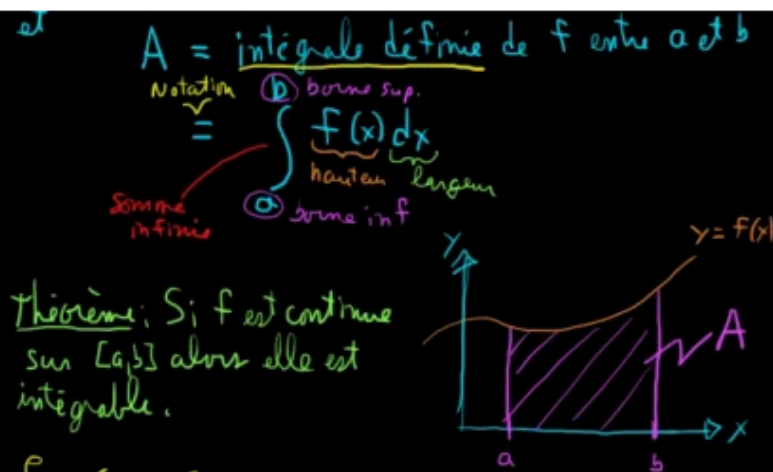 et
A = intégrale définie de f entre a et b
Notation
b borne sup.
= ∫ f(x) dx
hauteur largeur
a borne inf
somme
infinie
Théorème: Si f est continue
sur [a,b] alors elle est
intégrable.
y
y = f(x)
A
x
a
b